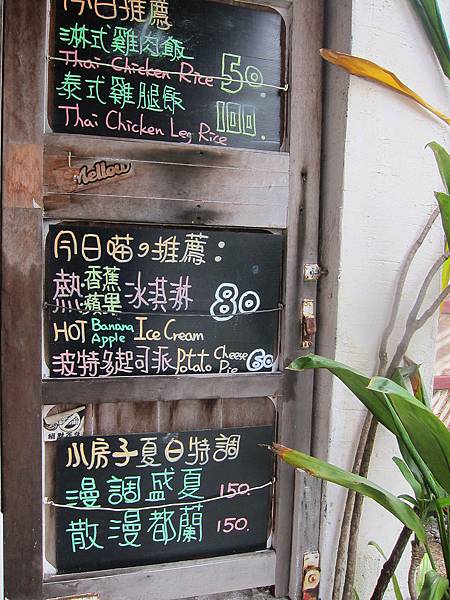 今日推薦
淋式雞肉飯
Thai Chicken Rice 50.
泰式雞腿飯
Thai Chicken Leg Rice 100.
Mellow
今日喵の推薦：
熱香蕉蘋果冰淇淋 80
HOT Banana Apple Ice Cream
波特多起司派 Potato Cheese Pie 60
小房子夏日特調
漫調盛夏 150.
散漫都蘭 150.